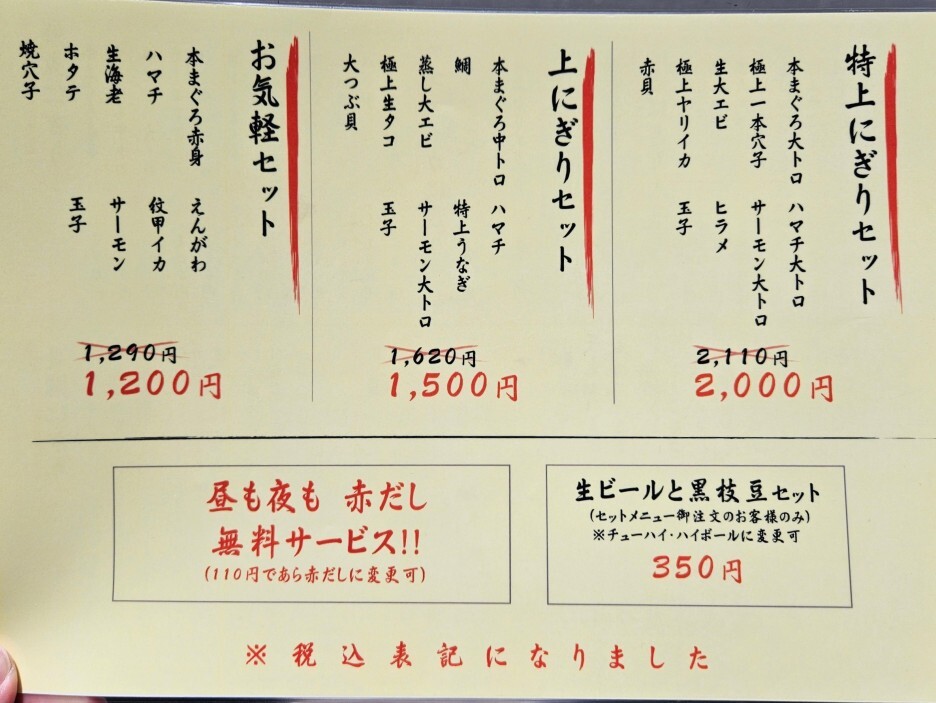 特上にぎりセット
本まぐろ大トロ
極上一本穴子
生大エビ
極上ヤリイカ
赤貝
ハマチ大トロ
サーモン大トロ
ヒラメ
玉子
2,110円
2,000円
上にぎりセット
本まぐろ中トロ
鯛
蒸し大エビ
極上生タコ
大つぶ貝
ハマチ
特上うなぎ
サーモン大トロ
玉子
1,620円
1,500円
お気軽セット
本まぐろ赤身
ハマチ
生海老
ホタテ
焼穴子
えんがわ
紋甲イカ
サーモン
玉子
1,290円
1,200円
昼も夜も 赤だし
無料サービス!!
(110円であら赤だしに変更可)
生ビールと黒枝豆セット
(セットメニュー御注文のお客様のみ)
※チューハイ・ハイボールに変更可
350円
※税込表記になりました